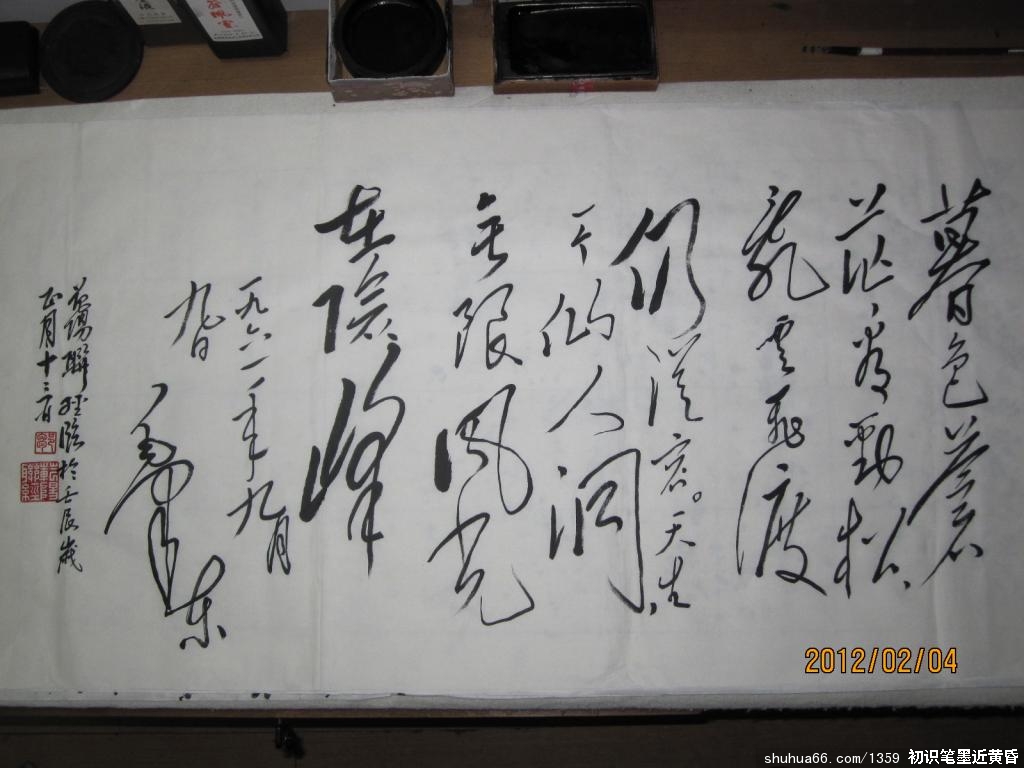 暮色苍
茫看劲松
乱云飞渡
仍從容。天生
一个仙人洞
无限风光
在险峰
一九六一年九月
九日
毛泽东
陽聯經臨於壬辰歲
正月十三日
2012/02/04
shuhua66.com/1359 初识笔墨近黄昏